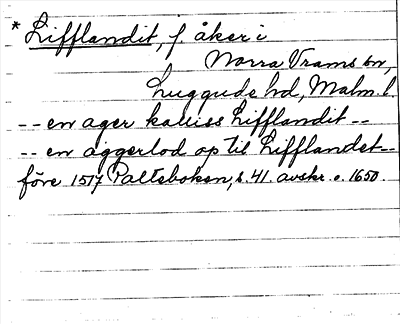 * Lifflandit, f. åker i
Norra Vrams sn,
Luggude hd, Malm. l.
-- en ager kalliss Lifflandit --
-- en aggerlod op til Lifflandet --
före 1517 Paltsboken, s. 41. avskr. c. 1650.